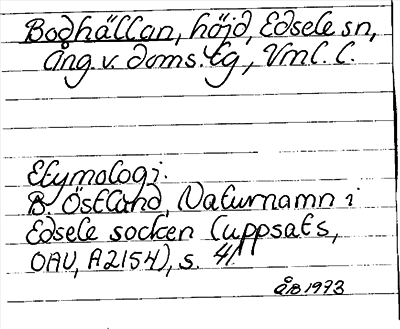 Bodhällan, höjd, Edsele sn,
Ång. v. doms. tg, Vml. l.
Etymologi:
B. Östlund, Naturnamn i
Edsele socken (uppsats,
OAU, A2154), s. 41.
ÅB 1973